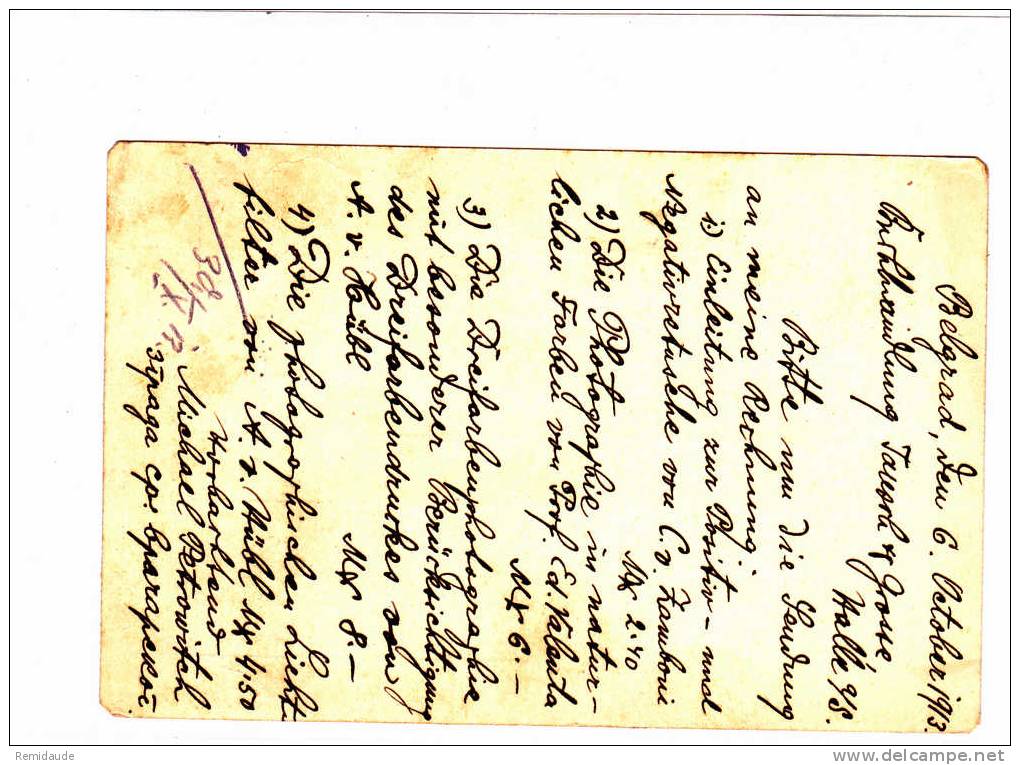 Belgrad, den 6. October 1913.
Buchhandlung Tausch & Grosse
Halle a/S.
Bitte um die Sendung
an meine Rechnung:
1) Einleitung zur Positiv- und
Negativretusche von C. v. Zamboni
M 2.40
2) Die Photographie in natür-
lichen Farben von Prof. Ed. Valenta
M 6.-
3) Die Dreifarbenphotographie
mit besonderer Berücksichtigung
des Dreifarbendruckes von
A. v. Hübl
M 8.-
4) Die photographischen Licht-
filter von A. v. Hübl M 4.50
Michael Petrowitch
зграда ср.
Remidaude
www.delcampe.net